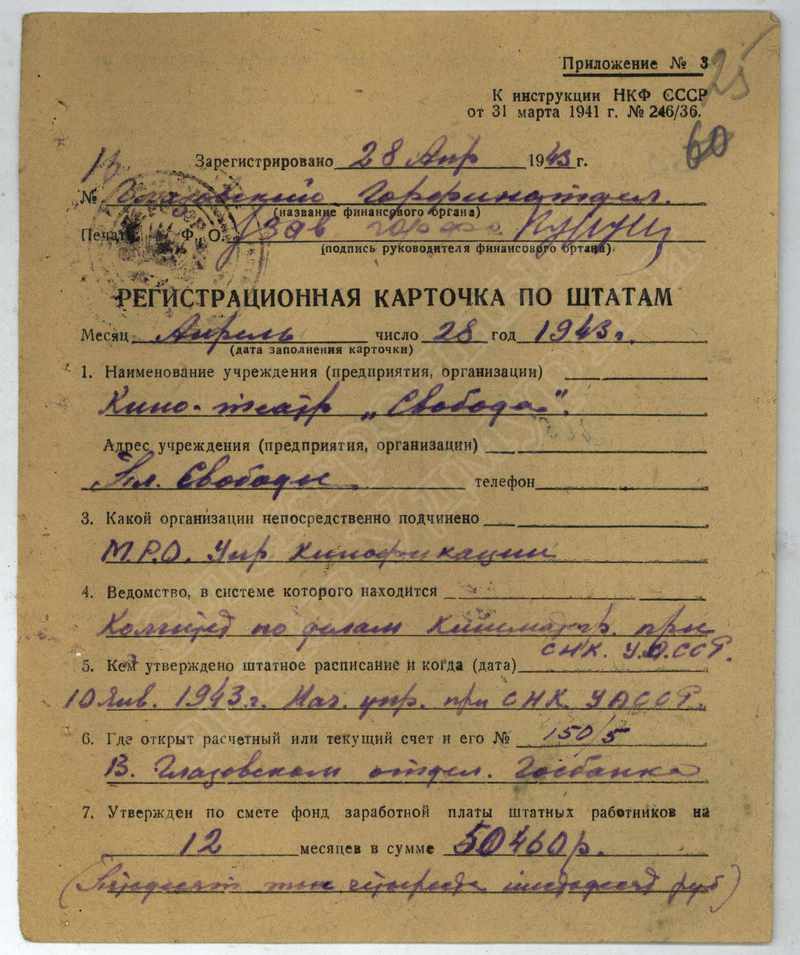 Приложение № 3
25
К инструкции НКФ СССР
от 31 марта 1941 г. № 246/36.
60
Зарегистрировано 28 Апр 1943 г.
№ Глазовский Горфинотдел.
(название финансового органа)
Печать Ф. О. Зав горфо
(подпись руководителя финансового органа)
РЕГИСТРАЦИОННАЯ КАРТОЧКА ПО ШТАТАМ
Месяц Апрель число 28 год 1943 г.
(дата заполнения карточки)
1. Наименование учреждения (предприятия, организации)
Кино-театр „Свобода".
Адрес учреждения (предприятия, организации)
Пл. Свободы телефон
3. Какой организации непосредственно подчинено
М.Р.О. Упр Кинофикации
4. Ведомство, в системе которого находится
Комитет по делам Кинематогр. при
СНК. У.А.ССР.
5. Кем утверждено штатное расписание и когда (дата)
10 Янв. 1943 г. Нач. упр. при СНК УАССР.
6. Где открыт расчетный или текущий счет и его № 150/5
В. Глазовском отдел. Госбанка
7. Утвержден по смете фонд заработной платы штатных работников на
12 месяцев в сумме 50460 р.
(Пятдесят тыс четыреста шестьдесят руб)